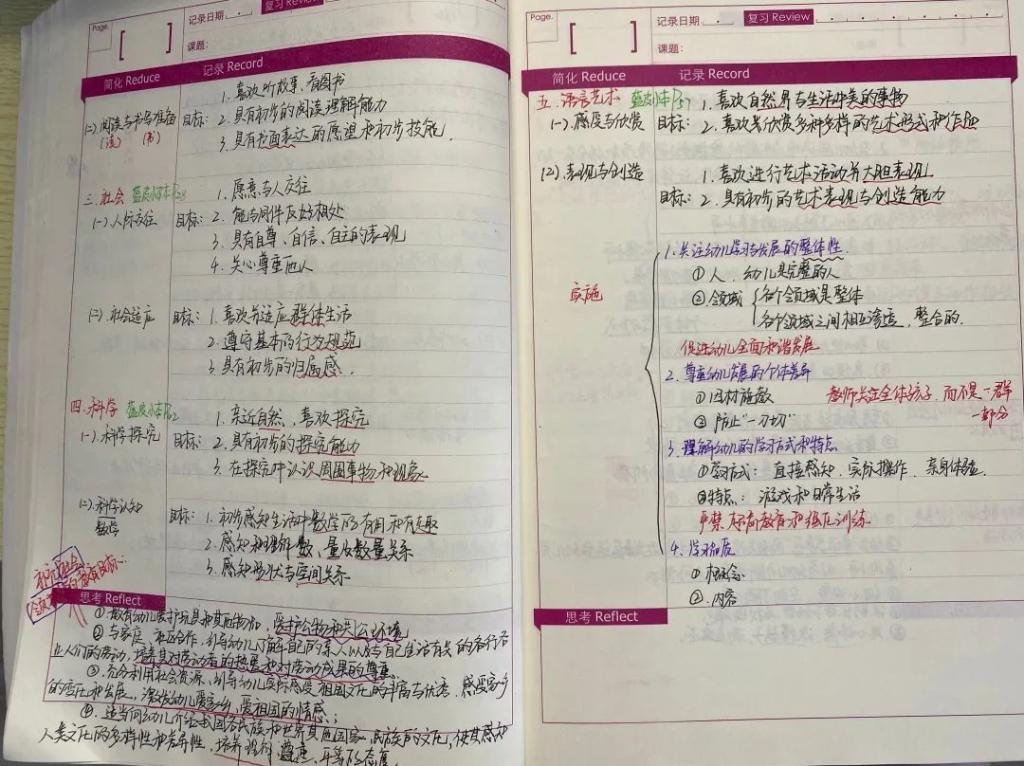 Page.
记录日期
复习 Review
课题:
简化 Reduce
记录 Record
(二)阅读与书写准备
(读) (书)
目标:
1. 喜欢听故事,看图书
2. 具有初步的阅读理解能力
3. 具有书面表达的愿望和初步技能.
三.社会 蓝皮小本P28
(一)人际交往
目标:
1. 愿意与人交往
2. 能与同伴友好相处
3. 具有自尊、自信、自主的表现
4. 关心尊重他人
(二)社会适应
目标:
1. 喜欢并适应群体生活
2. 遵守基本的行为规范
3. 具有初步的归属感.
四.科学 蓝皮小本
(一)科学探究
目标:
1. 亲近自然,喜欢探究
2. 具有初步的探究能力
3. 在探究中认识周围事物和现象
(二)科学认知
数学
目标:
1. 初步感知生活中数学的有用和有趣
2. 感知和理解数、量及数量关系
3. 感知形状与空间关系
的教育目标
思考 Reflect
①.教育幼儿爱护玩具和其他物品,爱护公物和公共环境
②.与家庭、社区合作,引导幼儿了解自己的亲人以及与自己生活有关的各行各
业人们的劳动,培养其对劳动者的热爱和对劳动成果的尊重.
③.充分利用社会资源,引导幼儿实际感受祖国文化的丰富与优秀,感受家乡
的变化和发展,激发幼儿爱家乡,爱祖国的情感;
④.适当向幼儿介绍我国各民族和世界其他国家、民族的文化,使其感知
人类文化的多样性和差异性,培养理解、尊重、平等的态度.
Page.
记录日期
复习 Review
课题:
简化 Reduce
记录 Record
五.语言艺术 蓝皮小本P57
(一).感受与欣赏
目标:
1. 喜欢自然界与生活中美的事物
2. 喜欢并欣赏多种多样的艺术形式和作品
(二).表现与创造
目标:
1. 喜欢进行艺术活动并大胆表现.
2. 具有初步的艺术表现与创造能力
实施
1.关注幼儿学习与发展的整体性.
①人.幼儿是完整的人
②领域 各个领域是整体
各个领域之间相互渗透,整合的.
促进幼儿全面和谐发展
2.尊重幼儿发展的个体差异
①因材施教 教师关注全体孩子,而不是一群
②防止“一刀切” 一部分
3.理解幼儿的学习方式和特点
①学习方式:直接感知、实际操作、亲身体验.
②特点:游戏和日常生活
严禁拔苗教育和强化训练
4.学习品质
①.概念
②.内容
思考 Reflect